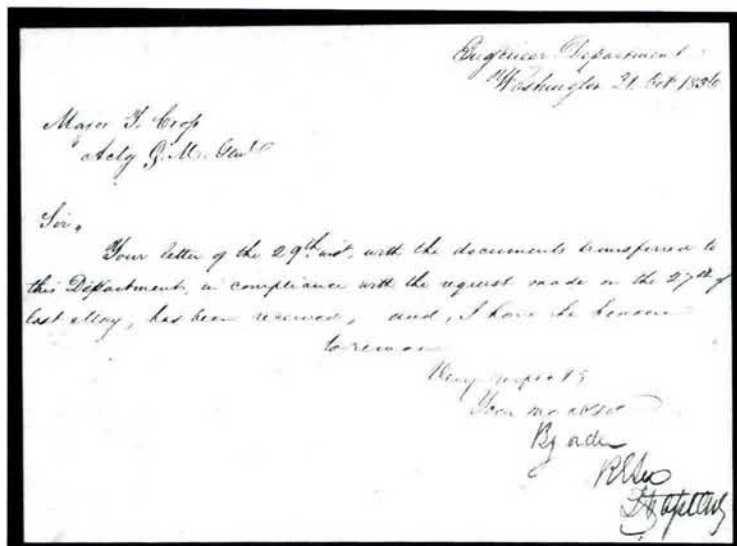 Engineer Department
Washington 21. Oct 1836
Major T. Cross
Actg Q. M. Genl
Sir,
Your letter of the 29th inst. with the documents transferred to
this Department, in compliance with the request made on the 27th of
last May, has been received, and, I have the honour
to remain
Very respectfy
Your mo obt svt
By order
RELee